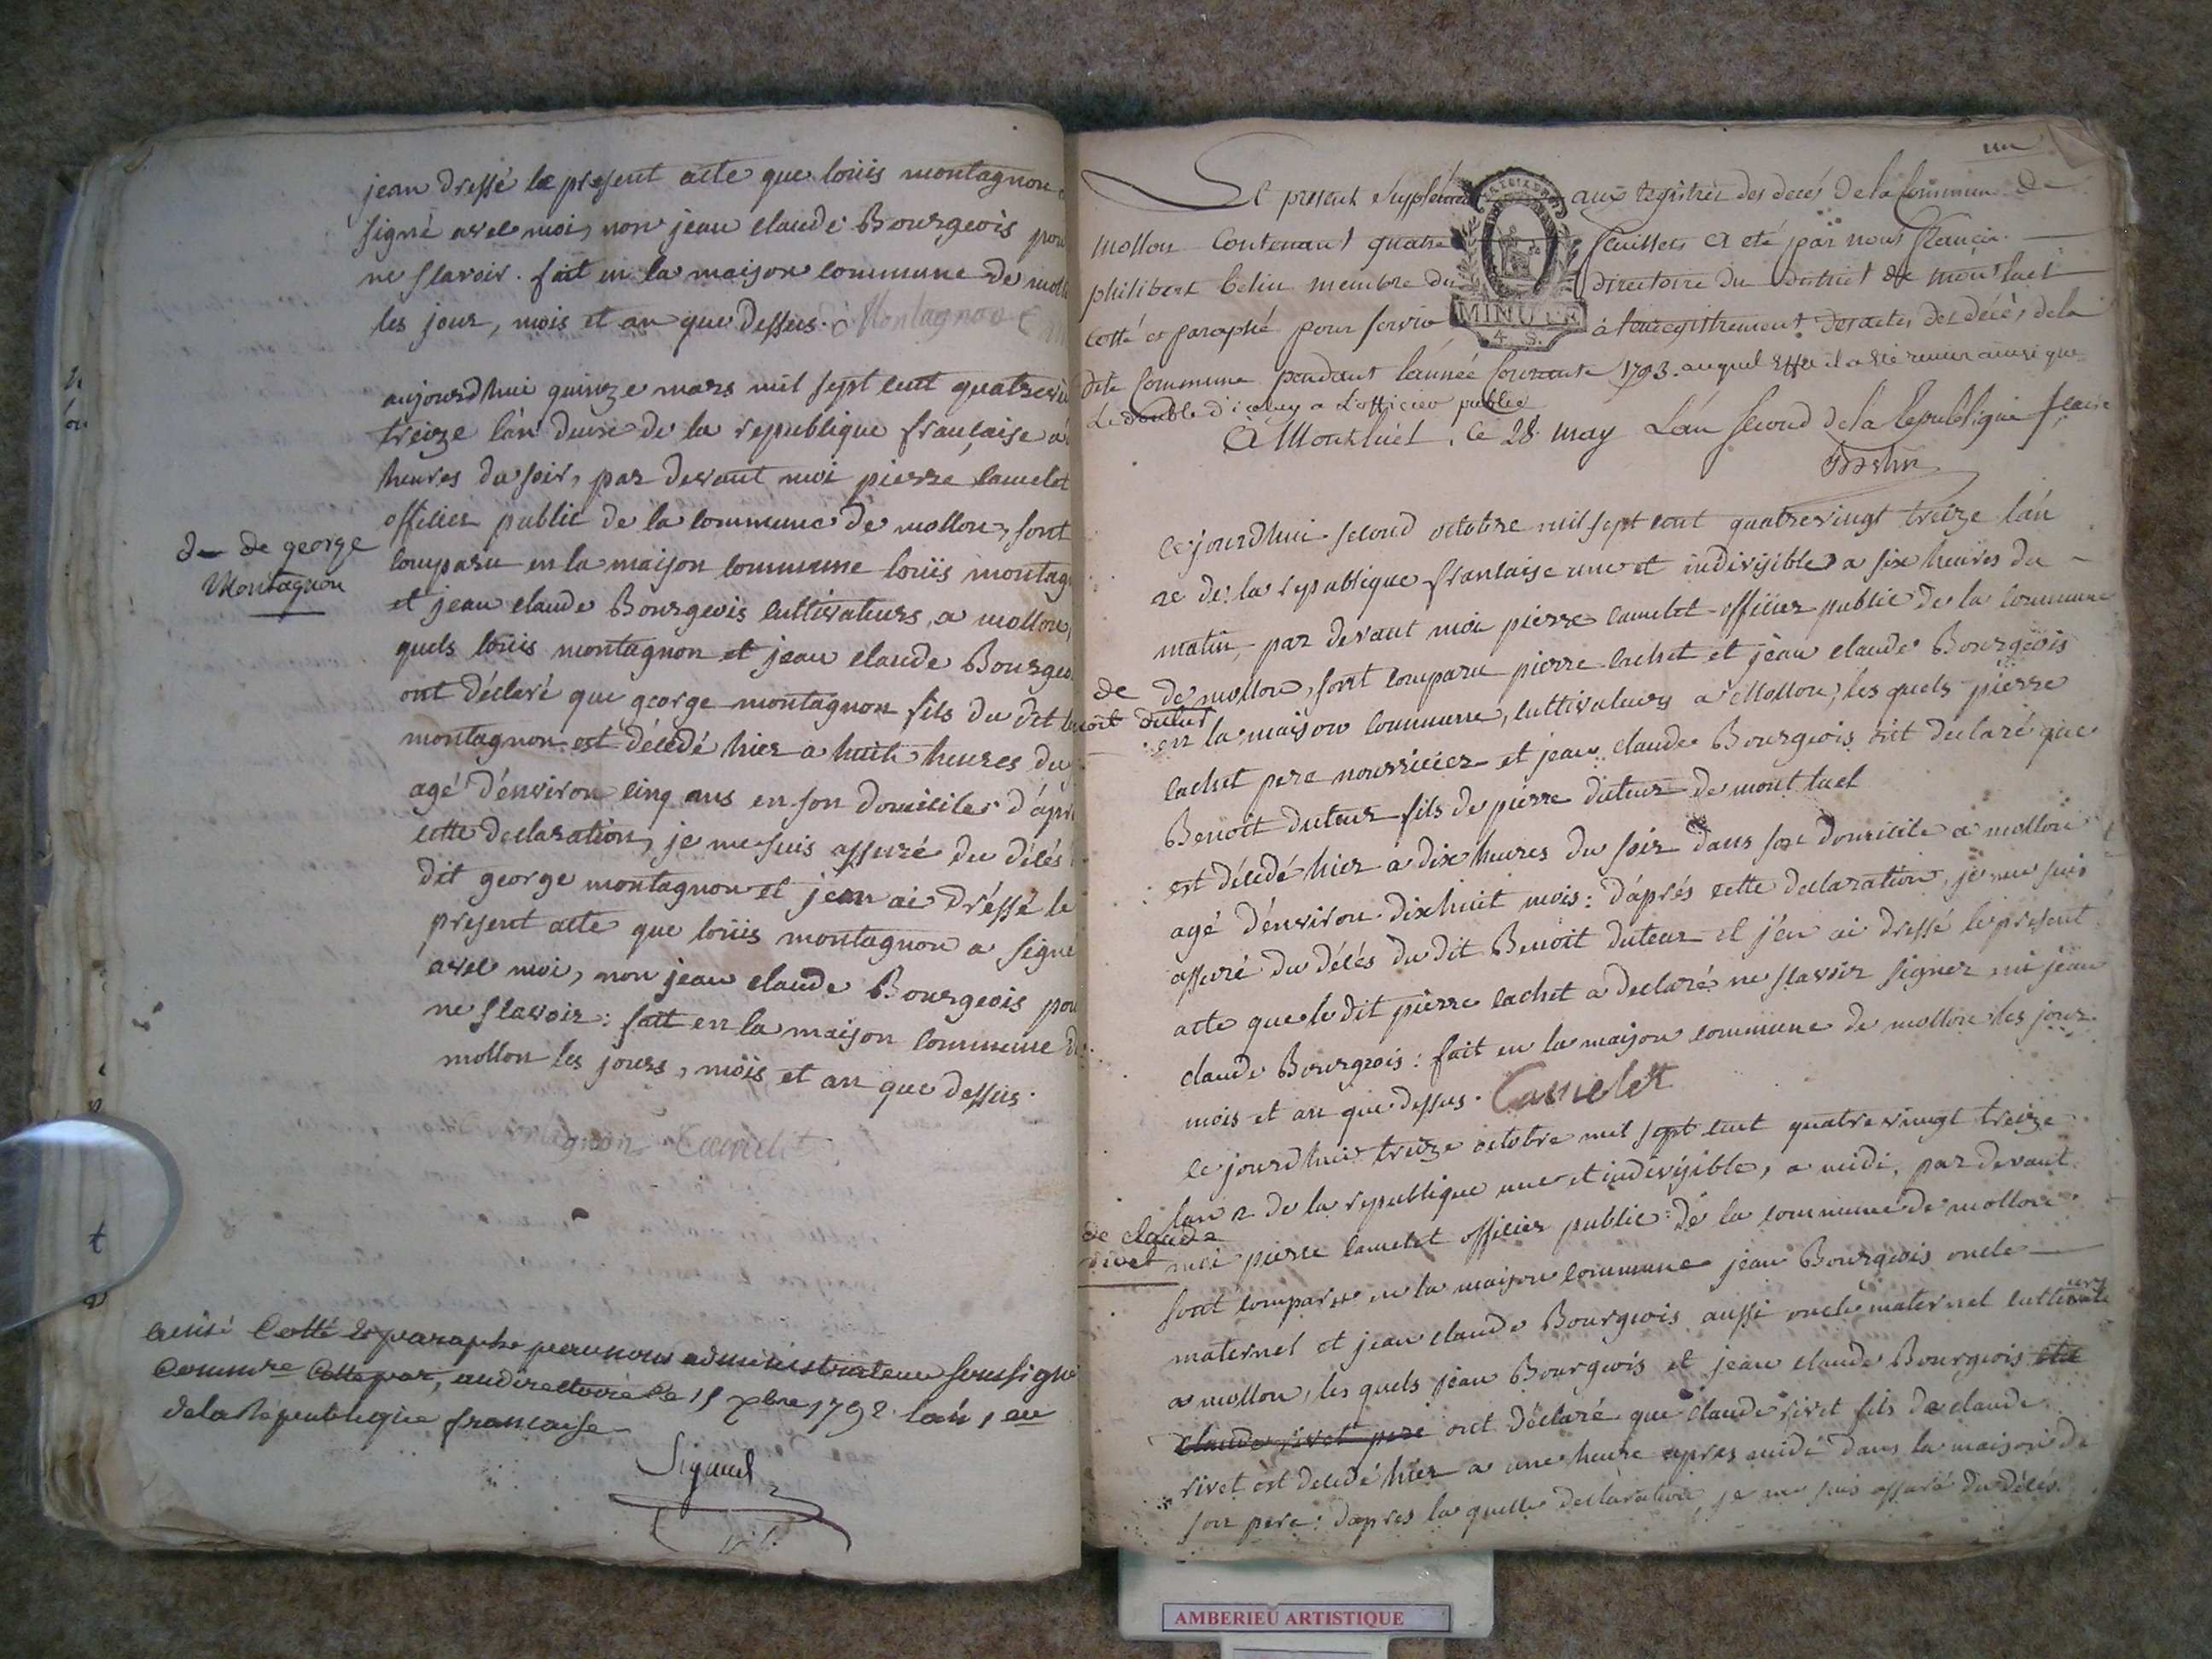 jean dressé le present acte que loüis montagnon a
signé avec moi, non jean claude Bourgeois pour
ne sçavoir. fait en la maison commune de moll
les jour, mois et an que dessus. Montagnon
aujourdhui quinze mars mil sept cent quatrevin
treize l'an deuxe de la republique française a
heures du soir, par devant moi pierre camelet
officier public de la commune de mollon, sont
comparu en la maison commune loüis montag
de george
Montagnon
et jean claude Bourgeois cultivateurs, a mollon,
quels loüis montagnon et jean claude Bourgeo
ont déclaré que george montagnon fils du dit
montagnon est décédé hier a huit heures du
agé d'environ cinq ans en son domicile: d'apr
cette declaration, je me suis assuré du décés
dit george montagnon et j'ean ai dréssé le
present acte que loüis montagnon a signe
avec moi, non jean claude Bourgeois pou
ne sçavoir: fait en la maison commune d
mollon les jours, mois et an que dessus.
Camelet
Cotté & paraphé par nous administrateur soussigné
au directoire ce 15 xbre 1792 l'an 1er
de la Republique francaise
Le présent Supplément aux registres des decés de la Commune de
mollon Contenant quatre feuillets a eté par nous François
philibert belin membre du directoire du district de montluel
cotté et paraphé pour servir à l'enregistrement des actes des décès de la
dite Commune pendant l'année Courante 1793. auquel effet il a été remis ainsi que
Le double d'iceluy a L'officier public
A Montluel, Ce 28 may L'an second de la Republique
Belin
ce jourdhui second octobre mil sept cent quatrevingt treize l'an
2e de la republique francaise une et indivisible a six heures du
matin, par devant moi pierre camelet officier public de la commune
de mollon, sont comparu pierre cachet et jean claude Bourgeois
de
benoit duteur
en la maison commune, cultivateurs a Mollon, les quels pierre
cachet pere nourricier et jean claude Bourgeois ont declaré que
Benoit duteur fils de pierre duteur de mont luel
est décédé hier a dix heures du soir dans son domicile a mollon
agé d'environ dixhuit mois: d'aprés cette declaration, je me suis
assuré du décés du dit Benoit duteur et j'en ai dressé le present
acte que le dit pierre cachet a declaré ne sçavoir signer ni jean
claude Bourgeois: fait en la maison commune de mollon les jour
mois et an que dessus. Camelet
ce jourdhui treize octobre mil sept cent quatrevingt treize
lan 2 de la republique une et indivisible, a midi, par devant
de claude
rivet
moi pierre camelet officier public de la commune de mollon
sont comparu en la maison commune jean Bourgeois oncle
maternel et jean claude Bourgeois aussi oncle maternel cultivateurs
a mollon, les quels jean Bourgeois et jean claude Bourgeois et
claude rivet pere ont déclaré que claude rivet fils de claude
rivet est decedé hier a une heure apres midi dans la maison de
son pere: dapres la quelle declaration, je me suis assuré du décés
AMBERIEU ARTISTIQUE